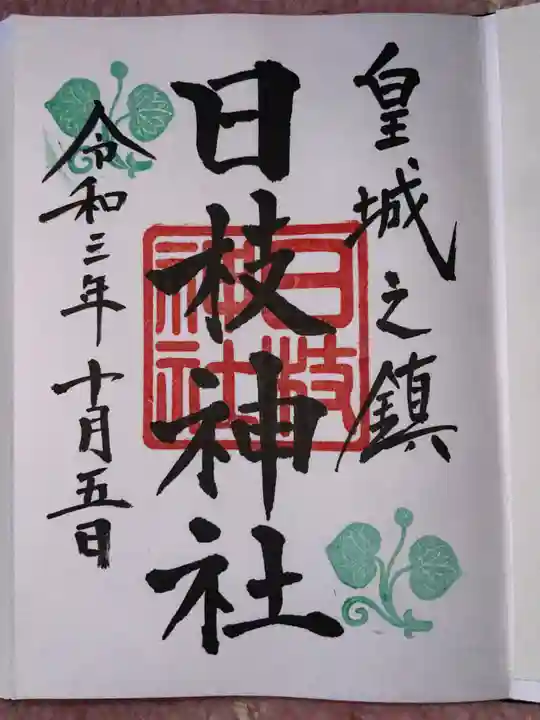 皇城之鎮
日枝神社
日枝
神社
令和三年十月五日